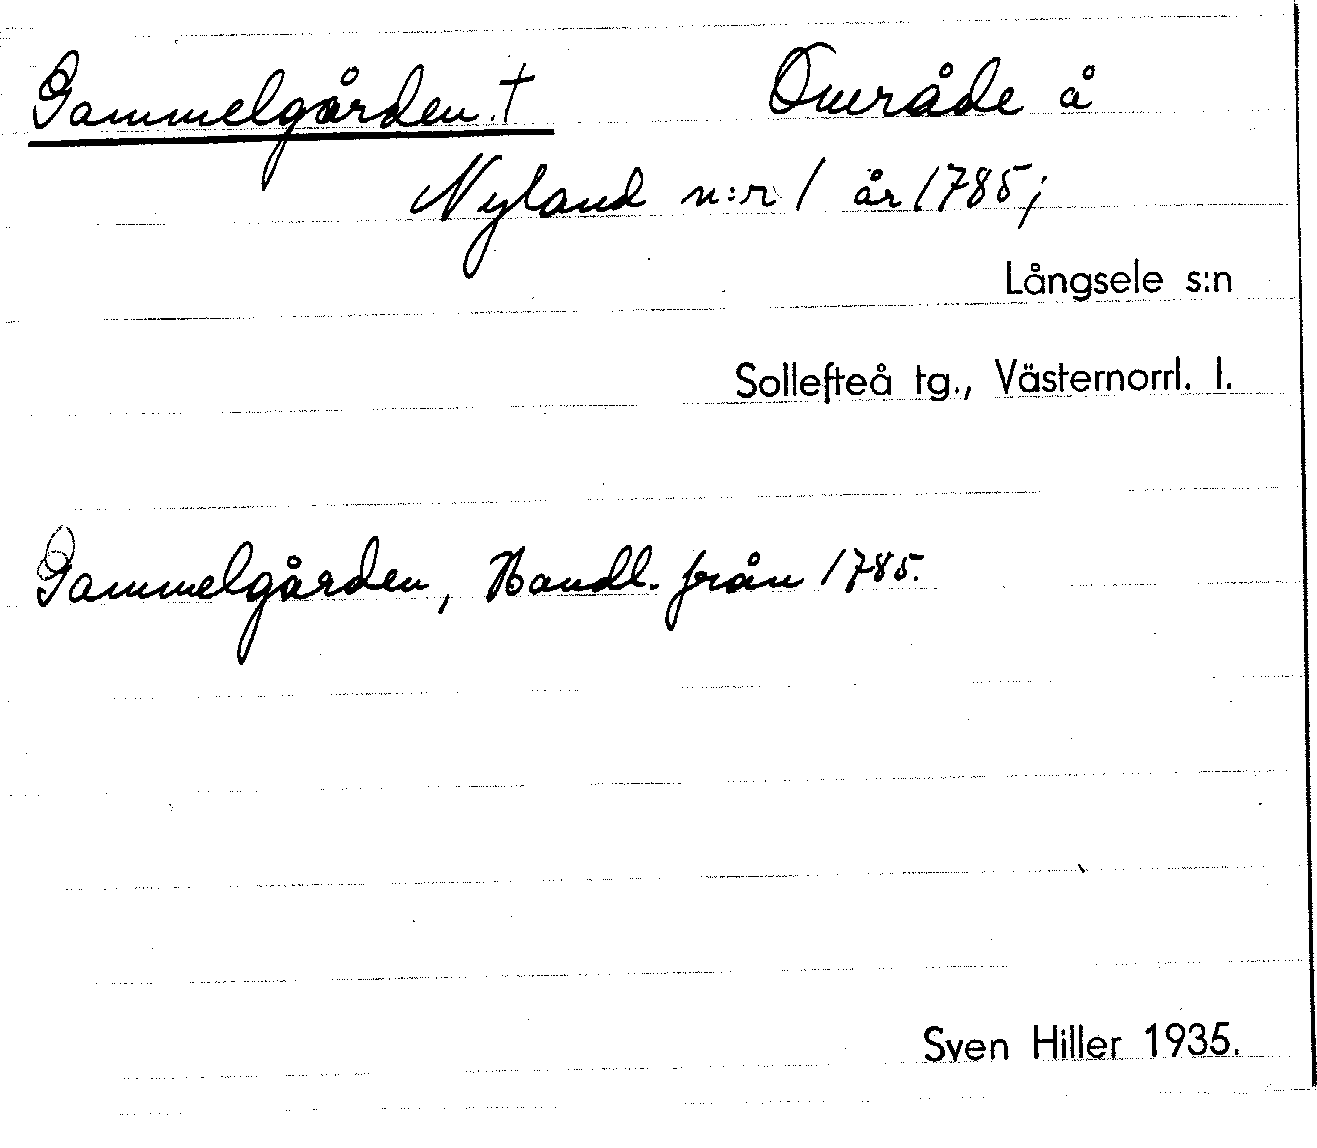 Gammelgården. † Område å
Nyland n:r 1 år 1785;
Långsele s:n
Sollefteå tg., Västernorrl. l.
Gammelgården, Handl. från 1785.
Sven Hiller 1935.